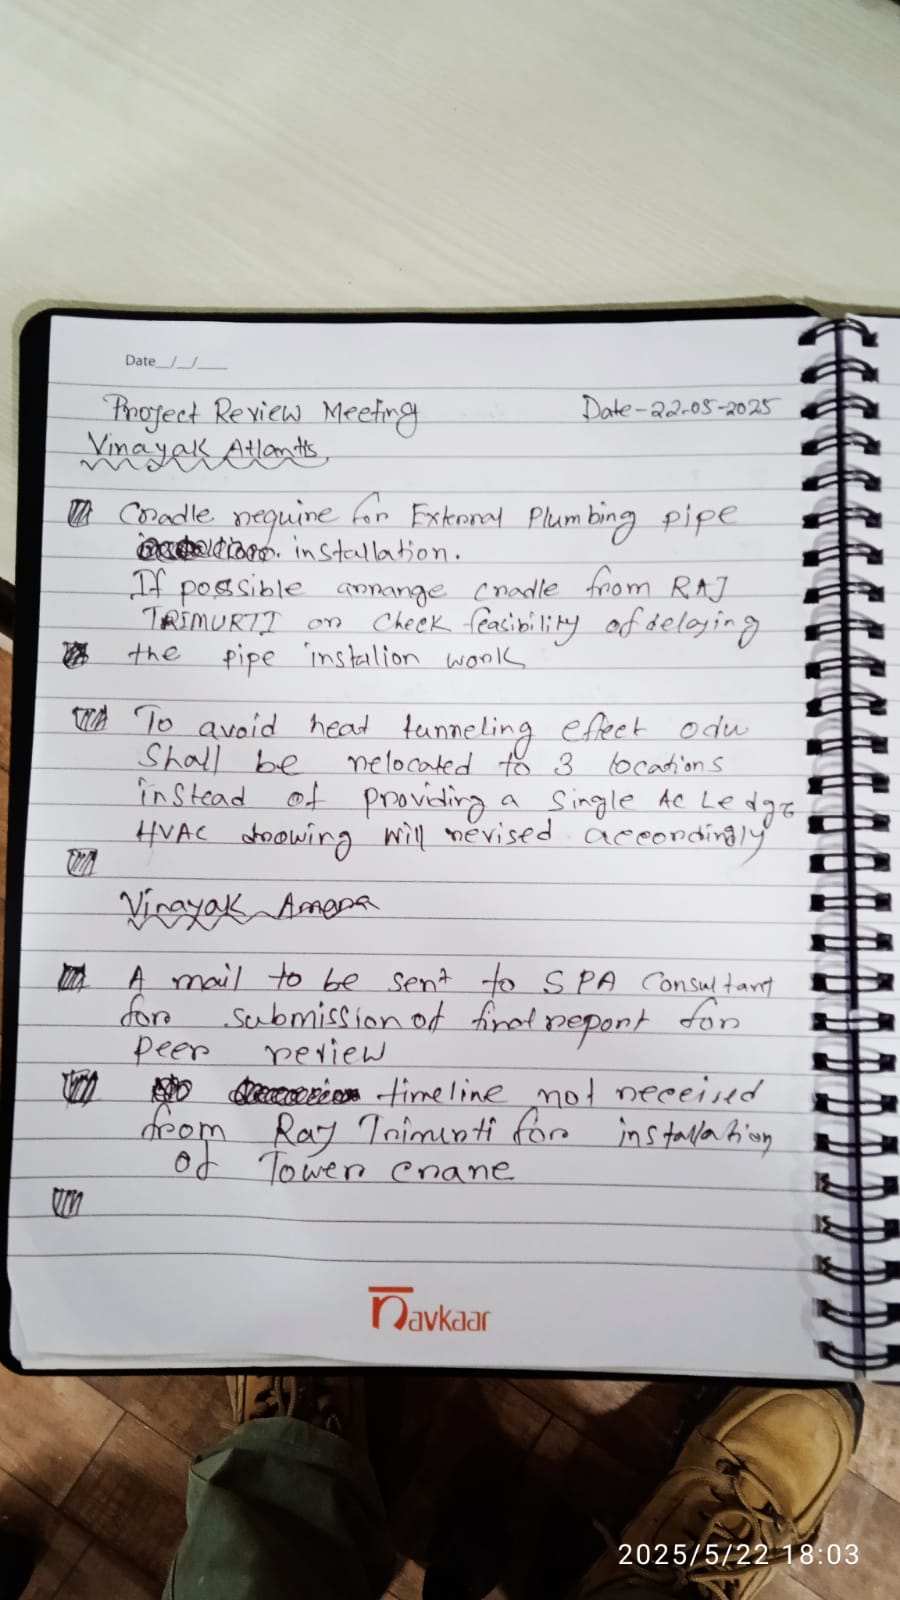 Date_/_/___
Project Review Meeting Date-22-05-2025
Vinayak Atlantis
Cradle require for External Plumbing pipe
installation.
If possible arrange cradle from RAJ
TRIMURTI or Check feasibility of delaying
the pipe instalion work
To avoid head tunneling effect odu
Shall be relocated to 3 locations
instead of providing a single AC Ledge
HVAC drowing will revised accordingly
Vinayak
A mail to be sent to SPA Consultant
for submission of final report for
peer review
timeline not received
from Ray Trimurti for installation
of Tower crane
navkaar
2025/5/22 18:03